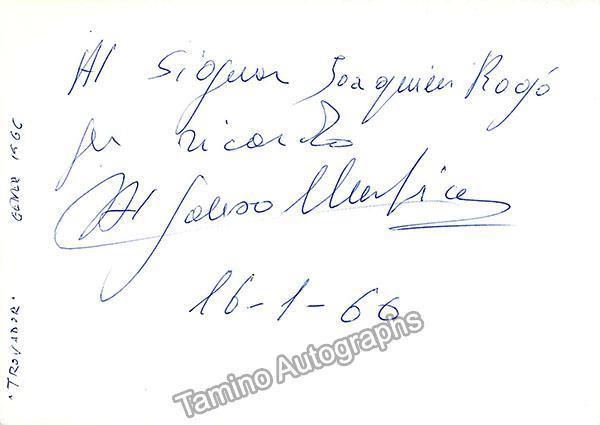 Al Signor Joaquien Rogó
per ricordo
Alfonso
16-1-66
"TROVADOR"
GENER 1966
Tamino Autographs